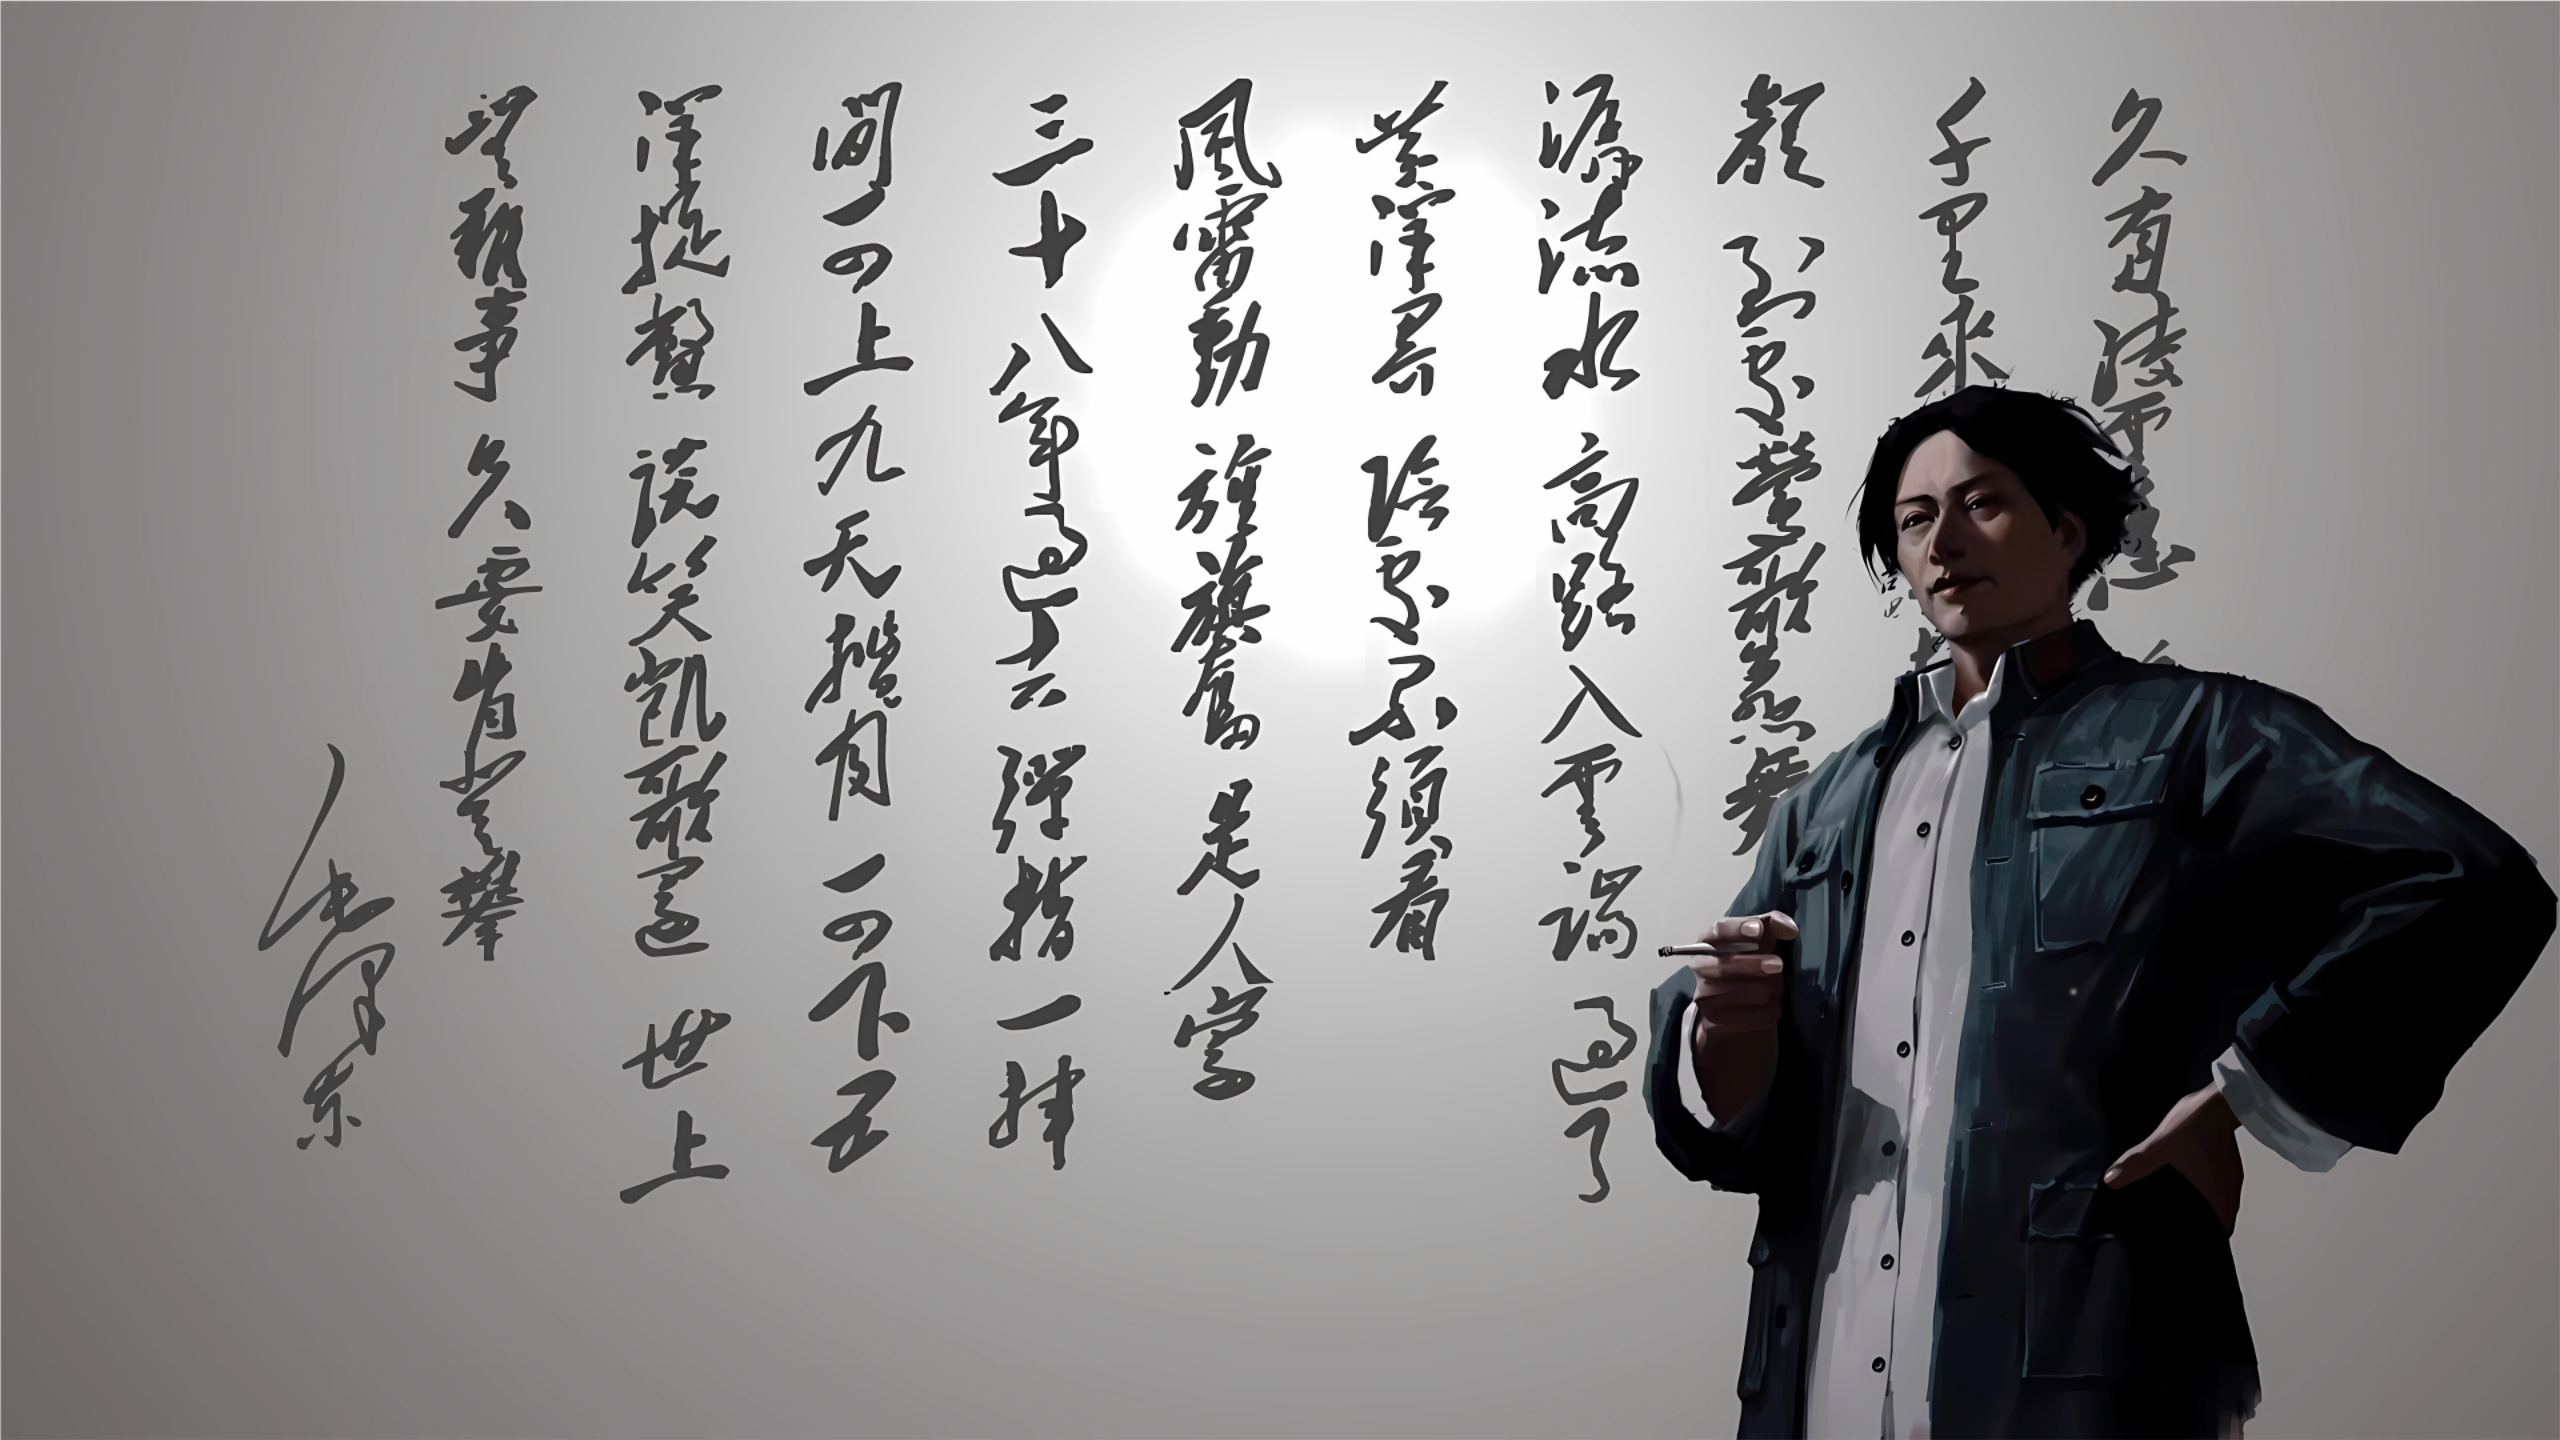 久有凌雲志
千里來
顏 到處鶯歌燕舞
潺流水 高路入雲端 過了
黃洋界 險處不須看
風雷動 旌旗奮 是人寰
三十八年過去 彈指一揮
間 可上九天攬月 可下五
洋捉鱉 談笑凱歌還 世上
無難事 只要肯登攀
毛澤東